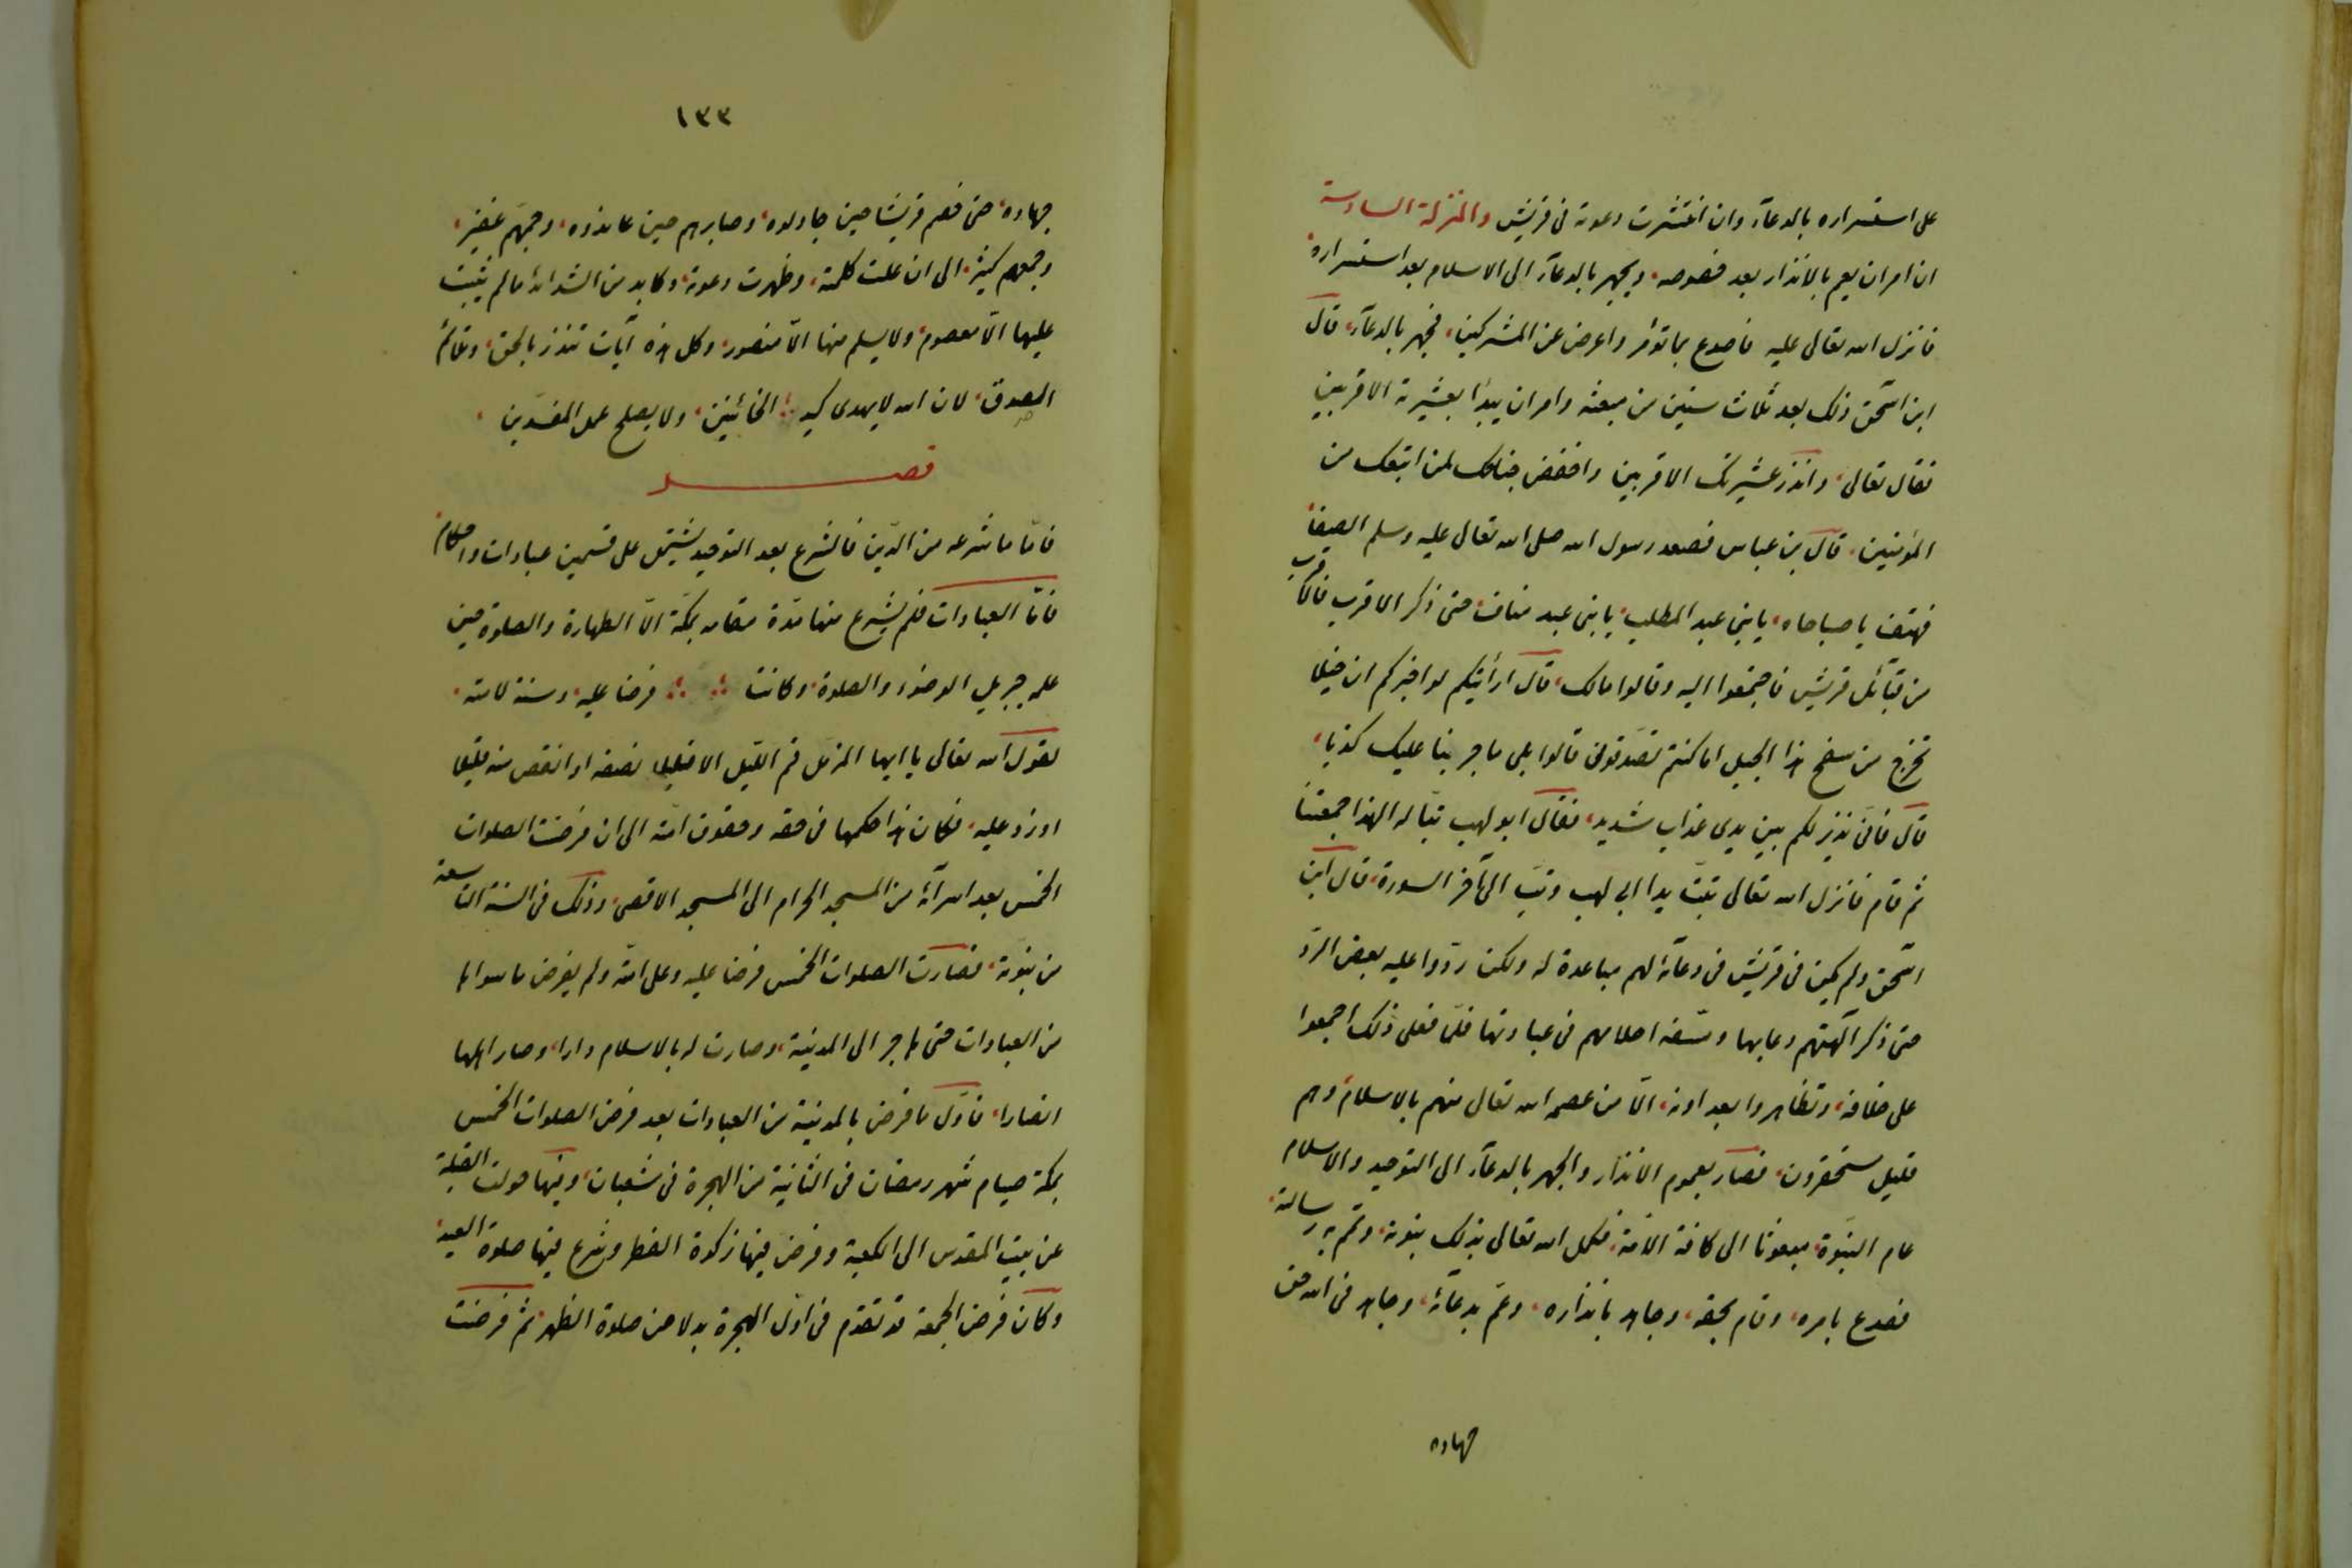 على استسراره بالدعآء وان انتشرت دعوته فى قريش والمنزلة السادسة
ان امر ان يعم بالانذار بعد خصوصه، ويجهر بالدعآء الى الاسلام بعد استسراره،
فانزل الله تعالى عليه فاصدع بما تؤمر واعرض عن المشركين، فجهر بالدعآء، قال
ابن اسحق ذلك بعد ثلاث سنين من مبعثه وامر ان يبدأ بعشيرته الاقربين
فقال تعالى، وانذر عشيرتك الاقربين واخفض جناحك لمن اتبعك من
المؤمنين، قال بن عباس فصعد رسول الله صلى الله تعالى عليه وسلم الصفا،
فهتف يا صباحاه، يا بنى عبد المطلب، يا بنى عبد مناف، حتى ذكر الاقرب فالاقرب
من قبآئل قريش فاجتمعوا اليه وقالوا مالك، قال ارأيتكم لو اخبرتكم ان خيلا
تخرج من سفح هذا الجبل اما كنتم تصدقونى قالوا بلى ما جربنا عليك كذبا،
قال فانى نذير لكم بين يدى عذاب شديد، فقال ابو لهب تبّا له الهذا جمعتنا
ثم قام فانزل الله تعالى تبّت يدا ابى لهب وتبّ الى آخر السورة، قال ابن
اسحق ولم يكن فى قريش فى دعآئه لهم مباعدة له ولكن ردّوا عليه بعض الردّ
حتى ذكر آلهتهم وعابها وسفّه احلامهم فى عبادتها فلمّا فعل ذلك اجمعوا
على خلافه، وتظاهروا بعداوته، الّا من عصمه الله تعالى منهم بالاسلام، وهم
قليل مستحقرون، فصار بعموم الانذار والجهر بالدعآء الى التوحيد والاسلام
عام النبوّة، مبعوثا الى كافة الامّة، فكمل الله تعالى بذلك نبوته، وتم به رسالته،
فصدع بامره، وقام بحقه، وجاهد بانذاره، وعمّ بدعآئه، وجاهد فى الله حق
جهاده
١٣٣
جهاده، حتى خصم قريشا حين جادلوه، وصابرهم حين عاندوه، وجمّهم غفير،
وجمعهم كثير، الى ان علت كلمته، وظهرت دعوته، وكابد من الشدائد ما لم يثبت
عليها الّا معصوم، ولا يسلم منها الّا منصور، وكل هذه آيات تنذر بالحق، وتلائم
الصدق، لان الله لا يهدى كيد الخائنين، ولا يصلح عمل المفسدين،
فصل
فامّا ما شرعه من الدّين فالشرع بعد التوحيد يشتمل على قسمين عبادات واحكام،
فامّا العبادات فلم يشرع منها مدّة مقامه بمكّة الّا الطهارة والصلوة حين
علمه جبريل الوضوء والصلوة، وكانت فرضا عليه، وسنة لامته،
لقول الله تعالى يا ايها المزمل قم الليل الا قليلا نصفه او انقص منه قليلا
او زد عليه، فكان هذا حكمها فى حقه وحقوق امته الى ان فرضت الصلوات
الخمس بعد اسرآئه من المسجد الحرام الى المسجد الاقصى، وذلك فى السنة التاسعة
من نبوّته، فصارت الصلوات الخمس فرضا عليه وعلى امته ولم يفرض ما سواها
من العبادات حتى هاجر الى المدينة، وصارت له بالاسلام دارا، وصار اهلها
انصارا، فاوّل ما فرض بالمدينة من العبادات بعد فرض الصلوات الخمس
بمكة صيام شهر رمضان فى الثانية من الهجرة فى شعبان، وفيها حولت القبلة
عن بيت المقدس الى الكعبة وفرض فيها زكوة الفطر وشرع فيها صلوة العيد،
وكان فرض الجمعة قد تقدّم فى اوّل الهجرة بدلا من صلوة الظهر، ثم فرضت